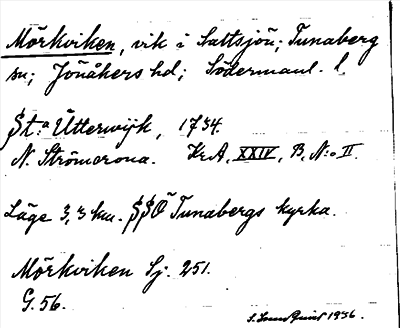 Mörkviken, vik i Saltsjön; Tunaberg
sn; Jönåkers hd; Södermanl. l.
St:a Utterwijk, 1734.
N. Strömcrona. Kr.A, XXIV, B, N:o II.
Läge 3,3 km. SSO Tunabergs kyrka.
Mörkviken Sj. 251.
G. 56.
S. Lundqvist 1936.